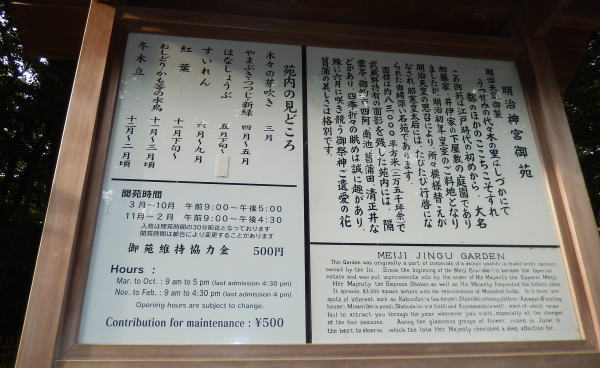 明治神宮御苑
明治天皇御製
うつせみの代々木の里はしづかにて
都のほかのここちこそすれ
この御苑は江戸時代の初めから、大名
加藤家・井伊家の下屋敷の庭園であり
ましたが、明治初年皇室のご料地となり
明治天皇の思召により、所々模様替えが
なされ昭憲皇太后には、たびたび行啓にな
られた由緒深い名苑であります。
面積は約八三〇〇〇平方米(二万五千坪余)で
武蔵野特有の面影を残した苑内には、隔
雲亭、御釣台、四阿、南池、菖蒲田、清正井な
どがあり、四季折々の眺めは誠に趣があり
殊に六月に咲き競う御祭神ご遺愛の花
菖蒲の美しさは格別です。
苑内の見どころ
木々の芽吹き 三月
やまぶき・つつじ・新緑 四月~五月
はなしょうぶ 五月下旬~
すいれん 六月~九月
紅葉 十一月下旬~
おしどりかも等の水鳥 十一月~三月頃
冬木立 十二月~二月頃
開苑時間
3月~10月 午前9:00~午後5:00
11月~2月 午前9:00~午後4:30
入苑は閉苑時間の30分前迄となっております
開苑時間は都合により変更することがあります
御苑維持協力金 500円
Hours :
Mar. to Oct. : 9 am to 5 pm (last admission 4:30 pm)
Nov. to Feb. : 9 am to 4:30 pm (last admission 4 pm)
Opening hours are subject to change.
Contribution for maintenance : ¥500
MEIJI JINGU GARDEN
This Garden was originally a part of compounds of a
owned by the Iis. Since the beginning of the Meiji Era it became the Imperial
estate and was put improvements into by the order of His Majesty the Emperor Meiji.
Her Majesty the Empress Shoken as well as His Majesty frequented this historic place.
It spreads 83,000 square meters with the reminiscence of Musashino fields. In it there are
spots of interest, such as Kakuuntei (a tea house), Otsuridai (fishing platform), Azumaya (resting
house), Minamiike (a pond), Shobuda (an iris field) and Kiyomasaido (a well), each of which never
fail to attract you through the year whenever you visit, especially at the changes
of the four seasons. Among the glamorous groups of flower, irises in June is
the best to observe, which the late Her Majesty cherished a deep affection for.